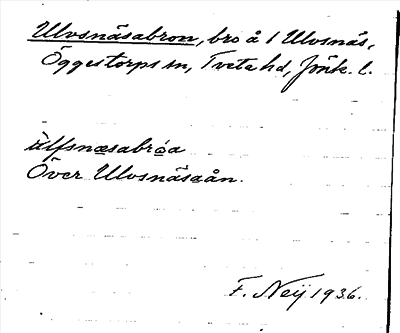 Ulvsnäsabron, bro å 1 Ulvsnäs,
Öggestorps sn, Tveta hd, Jönk. l.
ùlfsnæsabrǫ́a
Över Ulvsnäsaån.
F. Neij 1936.